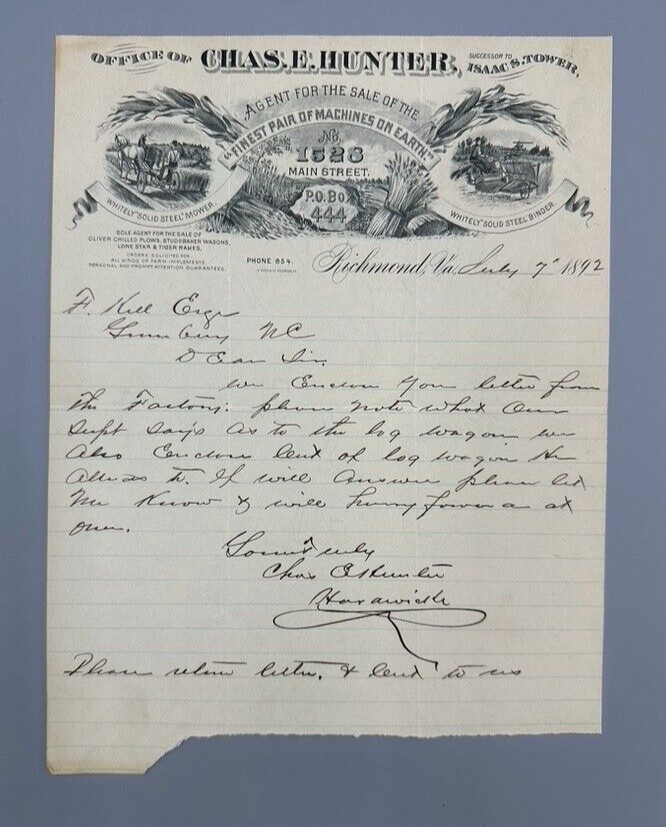 OFFICE OF CHAS. E. HUNTER, SUCCESSOR TO ISAAC S. TOWER,
AGENT FOR THE SALE OF THE
"FINEST PAIR OF MACHINES ON EARTH."
No.
1528
MAIN STREET.
P.O. BOX
444
WHITELY "SOLID STEEL" MOWER.
WHITELY "SOLID STEEL" BINDER.
SOLE AGENT FOR THE SALE OF
OLIVER CHILLED PLOWS, STUDEBAKER WAGONS,
LONE STAR & TIGER RAKES.
ORDERS SOLICITED FOR
ALL KINDS OF FARM IMPLEMENTS.
PERSONAL AND PROMPT ATTENTION GUARANTEED.
PHONE 854.
Richmond, Va. July 7" 1892
F. Hill Esqr
NC
Dear Sir.
We Enclose you letter from
The Factory. please note what Our
Supt says as to the log wagon we
Also Enclose of log wagon He
to. If will Answer please let
Me Know & will at
once.
Yours Truly
Chas E Hunter
Please return letter. & to us